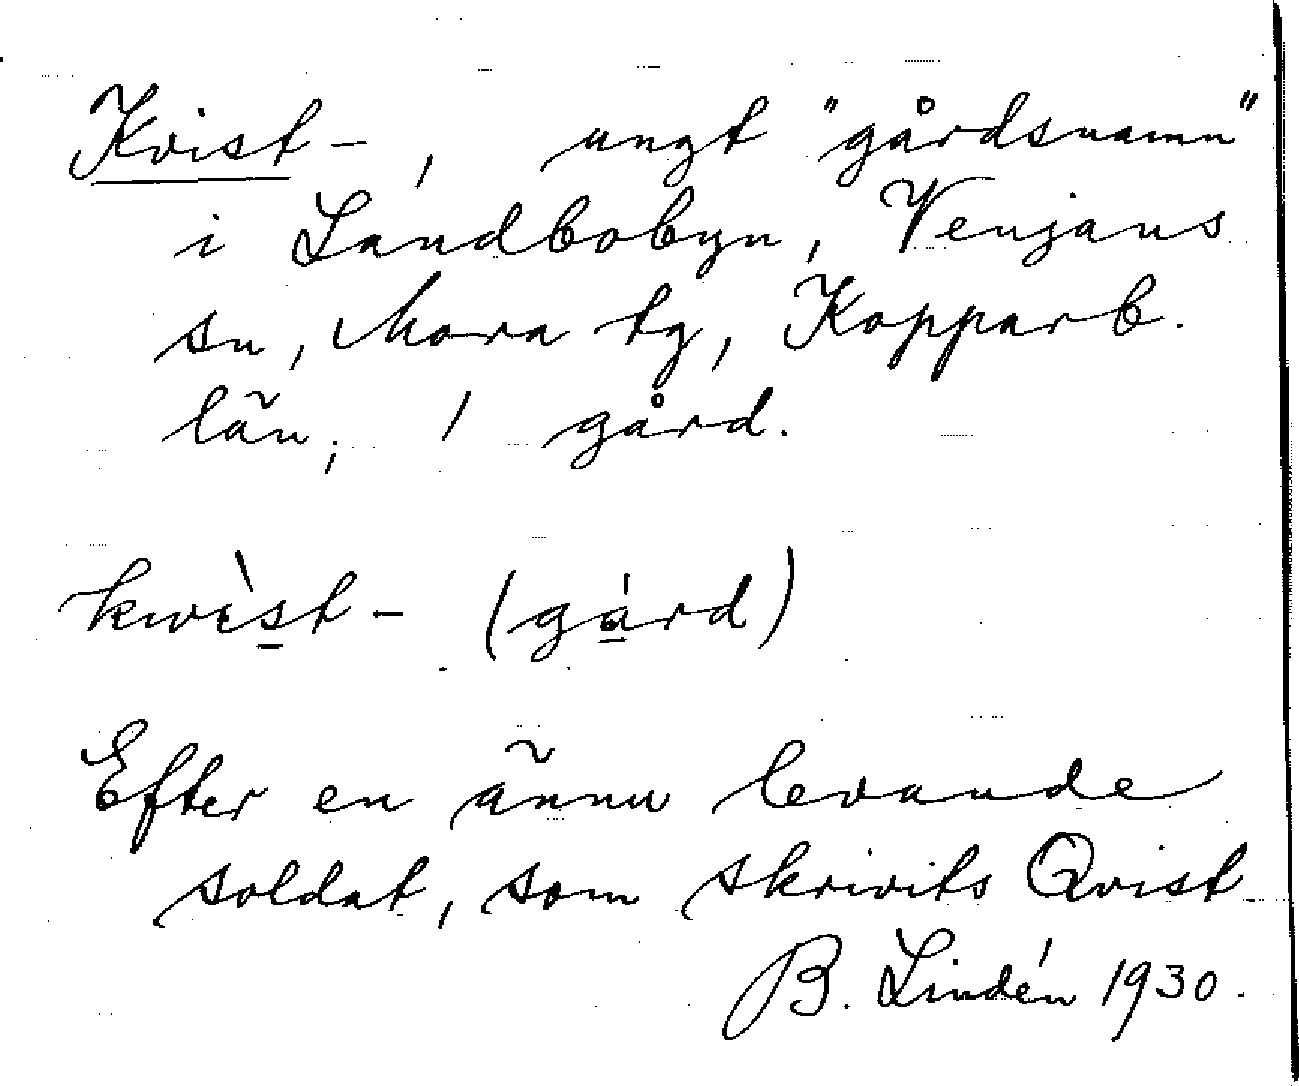 Kvist-, ungt "gårdsnamn"
i Landbobyn, Venjans
sn, Mora tg, Kopparb.
län; 1 gård.
kwìst- (gárd)
Efter en ännu levande
soldat, som skrivits Qvist
B. Lindén 1930.